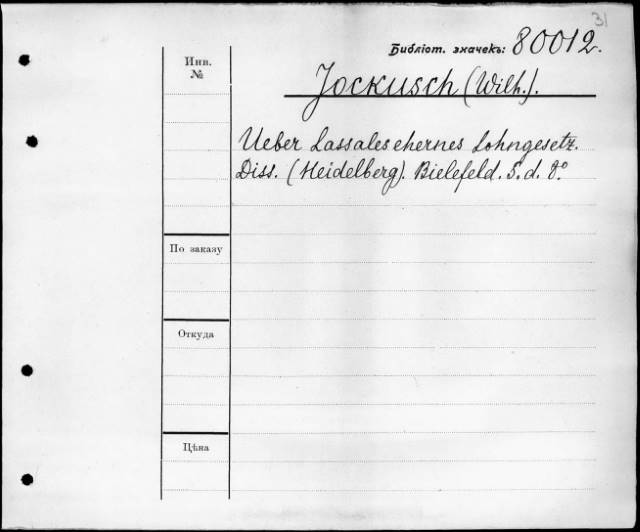 31
Библіот. значекъ: 80012.
Инв.
№
Jockusch (Wilh.).
Ueber Lassales ehernes Lohngesetz.
Diss. (Heidelberg). Bielefeld. S. d. 8º
По заказу
Откуда
Цѣна